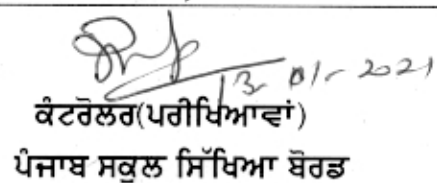 13-01-2021
ਕੰਟਰੋਲਰ(ਪਰੀਖਿਆਵਾਂ)
ਪੰਜਾਬ ਸਕੂਲ ਸਿੱਖਿਆ ਬੋਰਡ